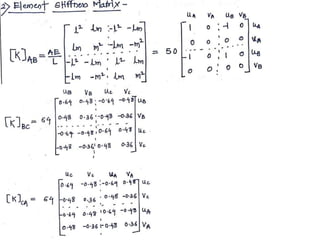 2) Element Stiffness Matrix -
uA vA uB vB
[K]AB = AE/L [l² lm -l² -lm] = 50 [1 0 -1 0] uA
[lm m² -lm -m²] [0 0 0 0] vA
[-l² -lm l² lm] [-1 0 1 0] uB
[-lm -m² lm m²] [0 0 0 0] vB
uB vB uC vC
[0.64 0.48 -0.64 -0.48] uB
[K]BC = 64 [0.48 0.36 -0.48 -0.36] vB
[-0.64 -0.48 0.64 0.48] uC
[-0.48 -0.36 0.48 0.36] vC
uC vC uA vA
[0.64 -0.48 -0.64 0.48] uC
[K]CA = 64 [-0.48 0.36 0.48 -0.36] vC
[-0.64 0.48 0.64 -0.48] uA
[0.48 -0.36 -0.48 0.36] vA